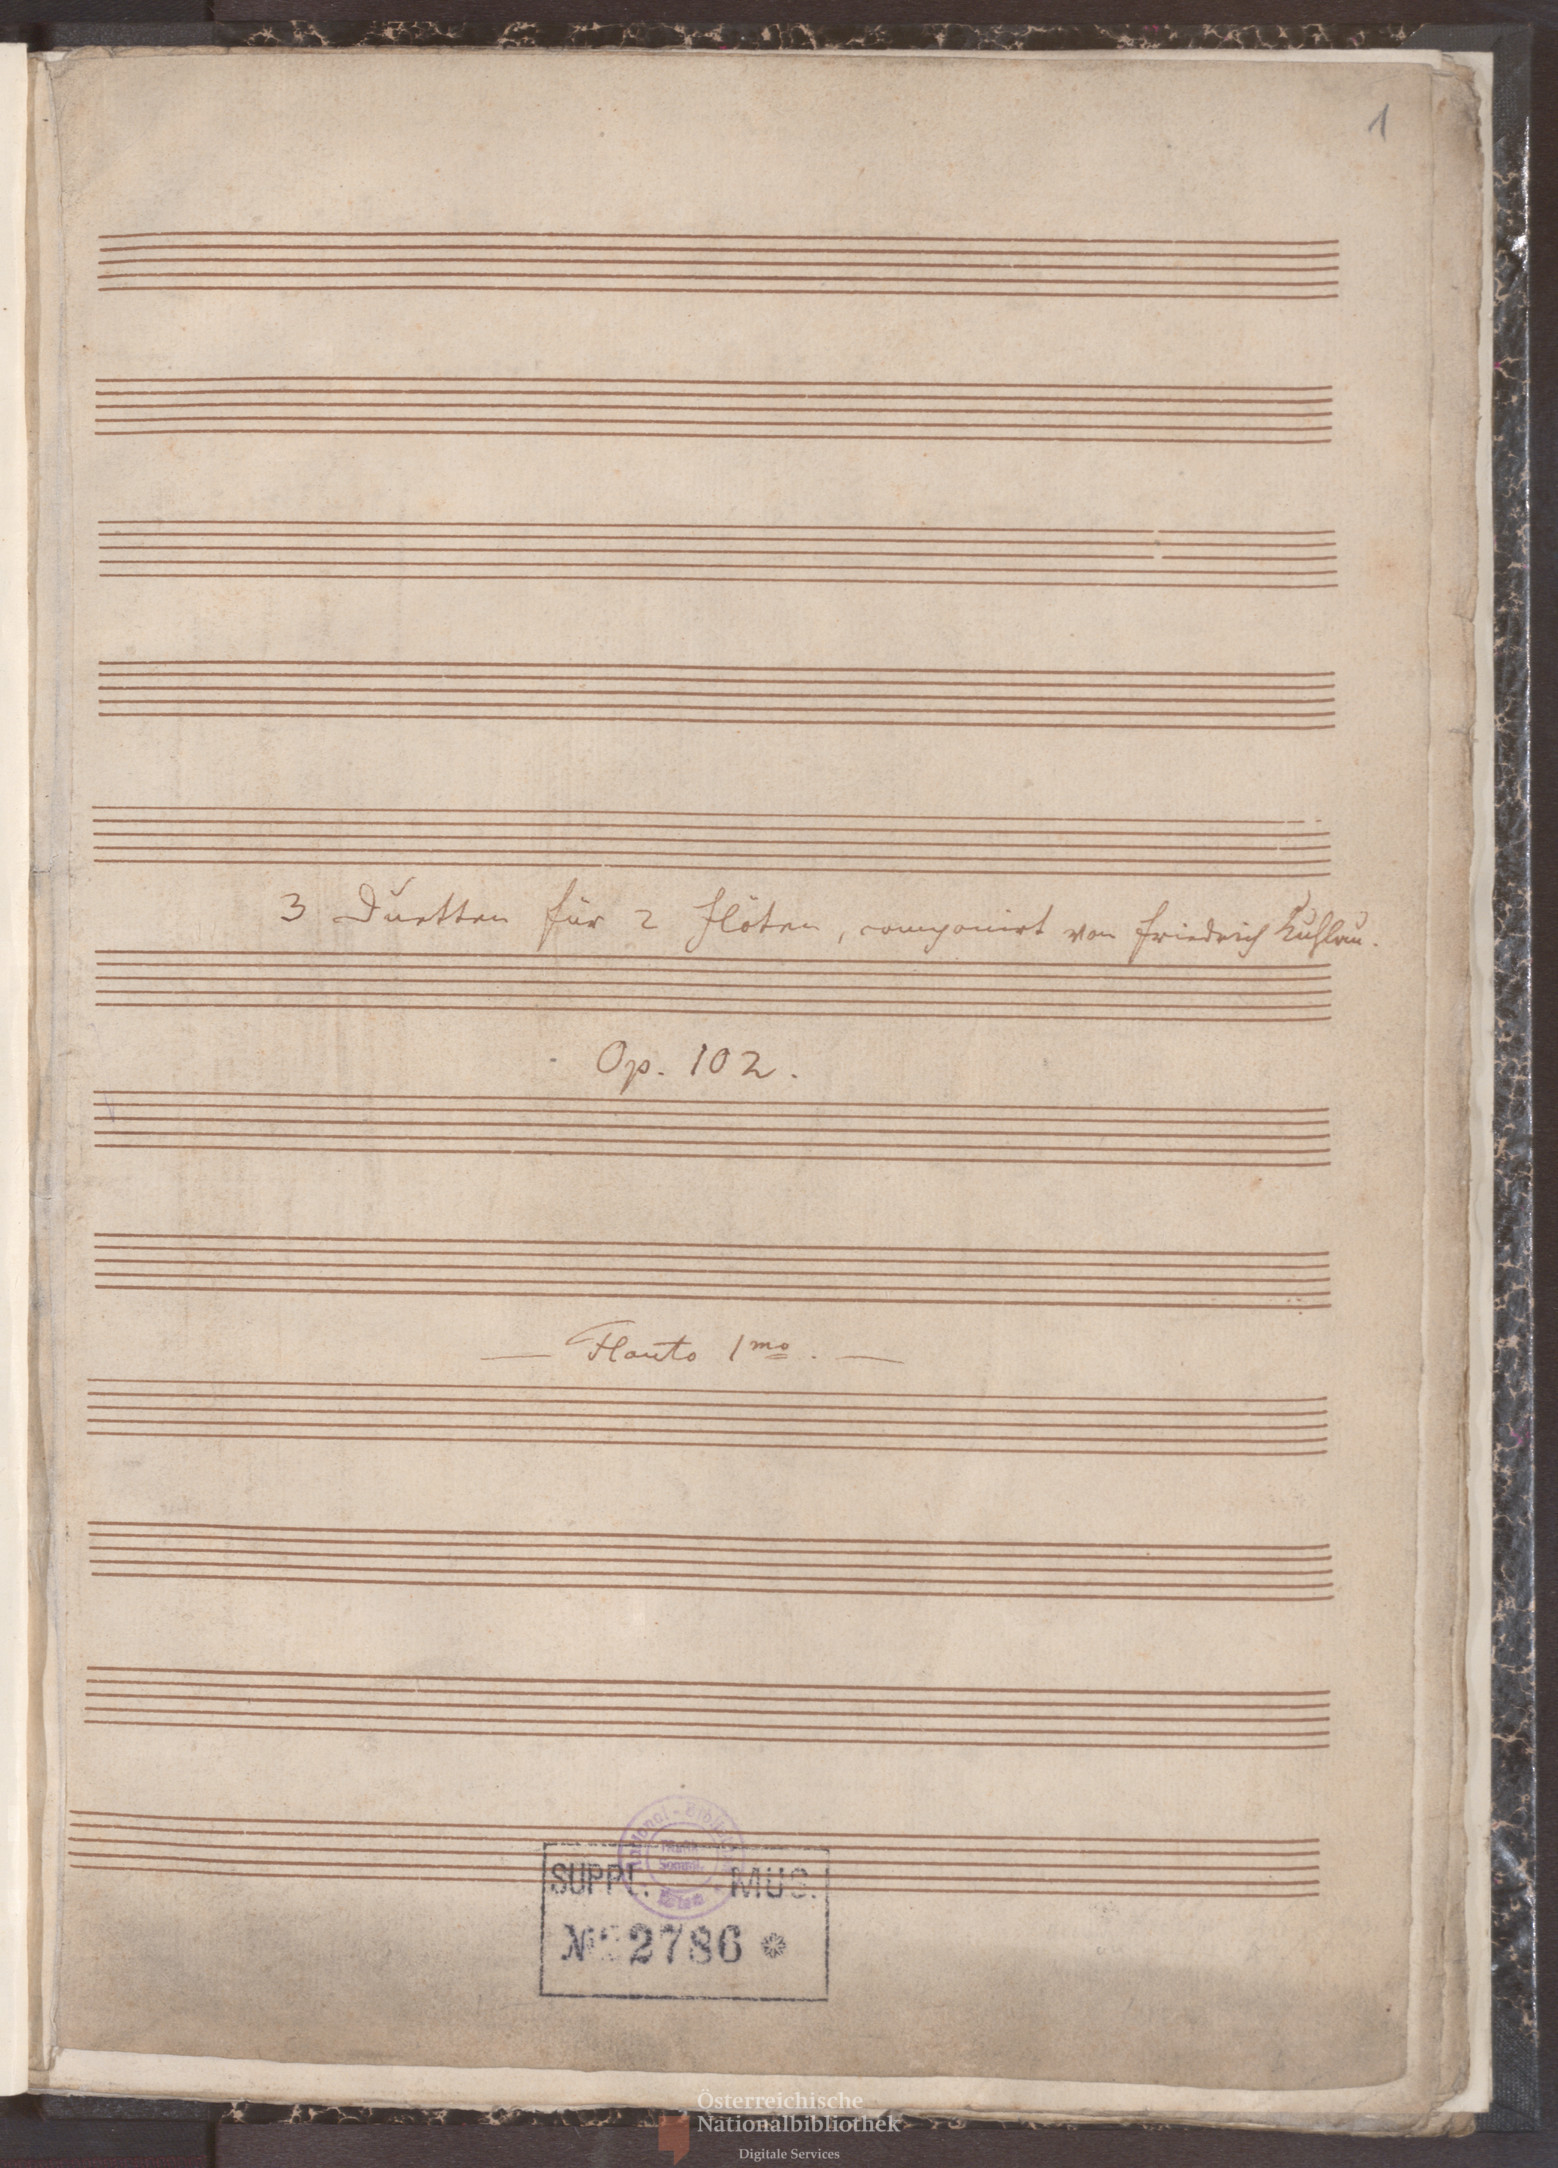 1
3 Duetten für 2 Flöten, componirt von Friedrich Kuhlau.
Op. 102.
— Flauto 1mo. —
National-Bibliothek
Wien
SUPPL. MUS.
No 2786 *
Österreichische
Nationalbibliothek
Digitale Services